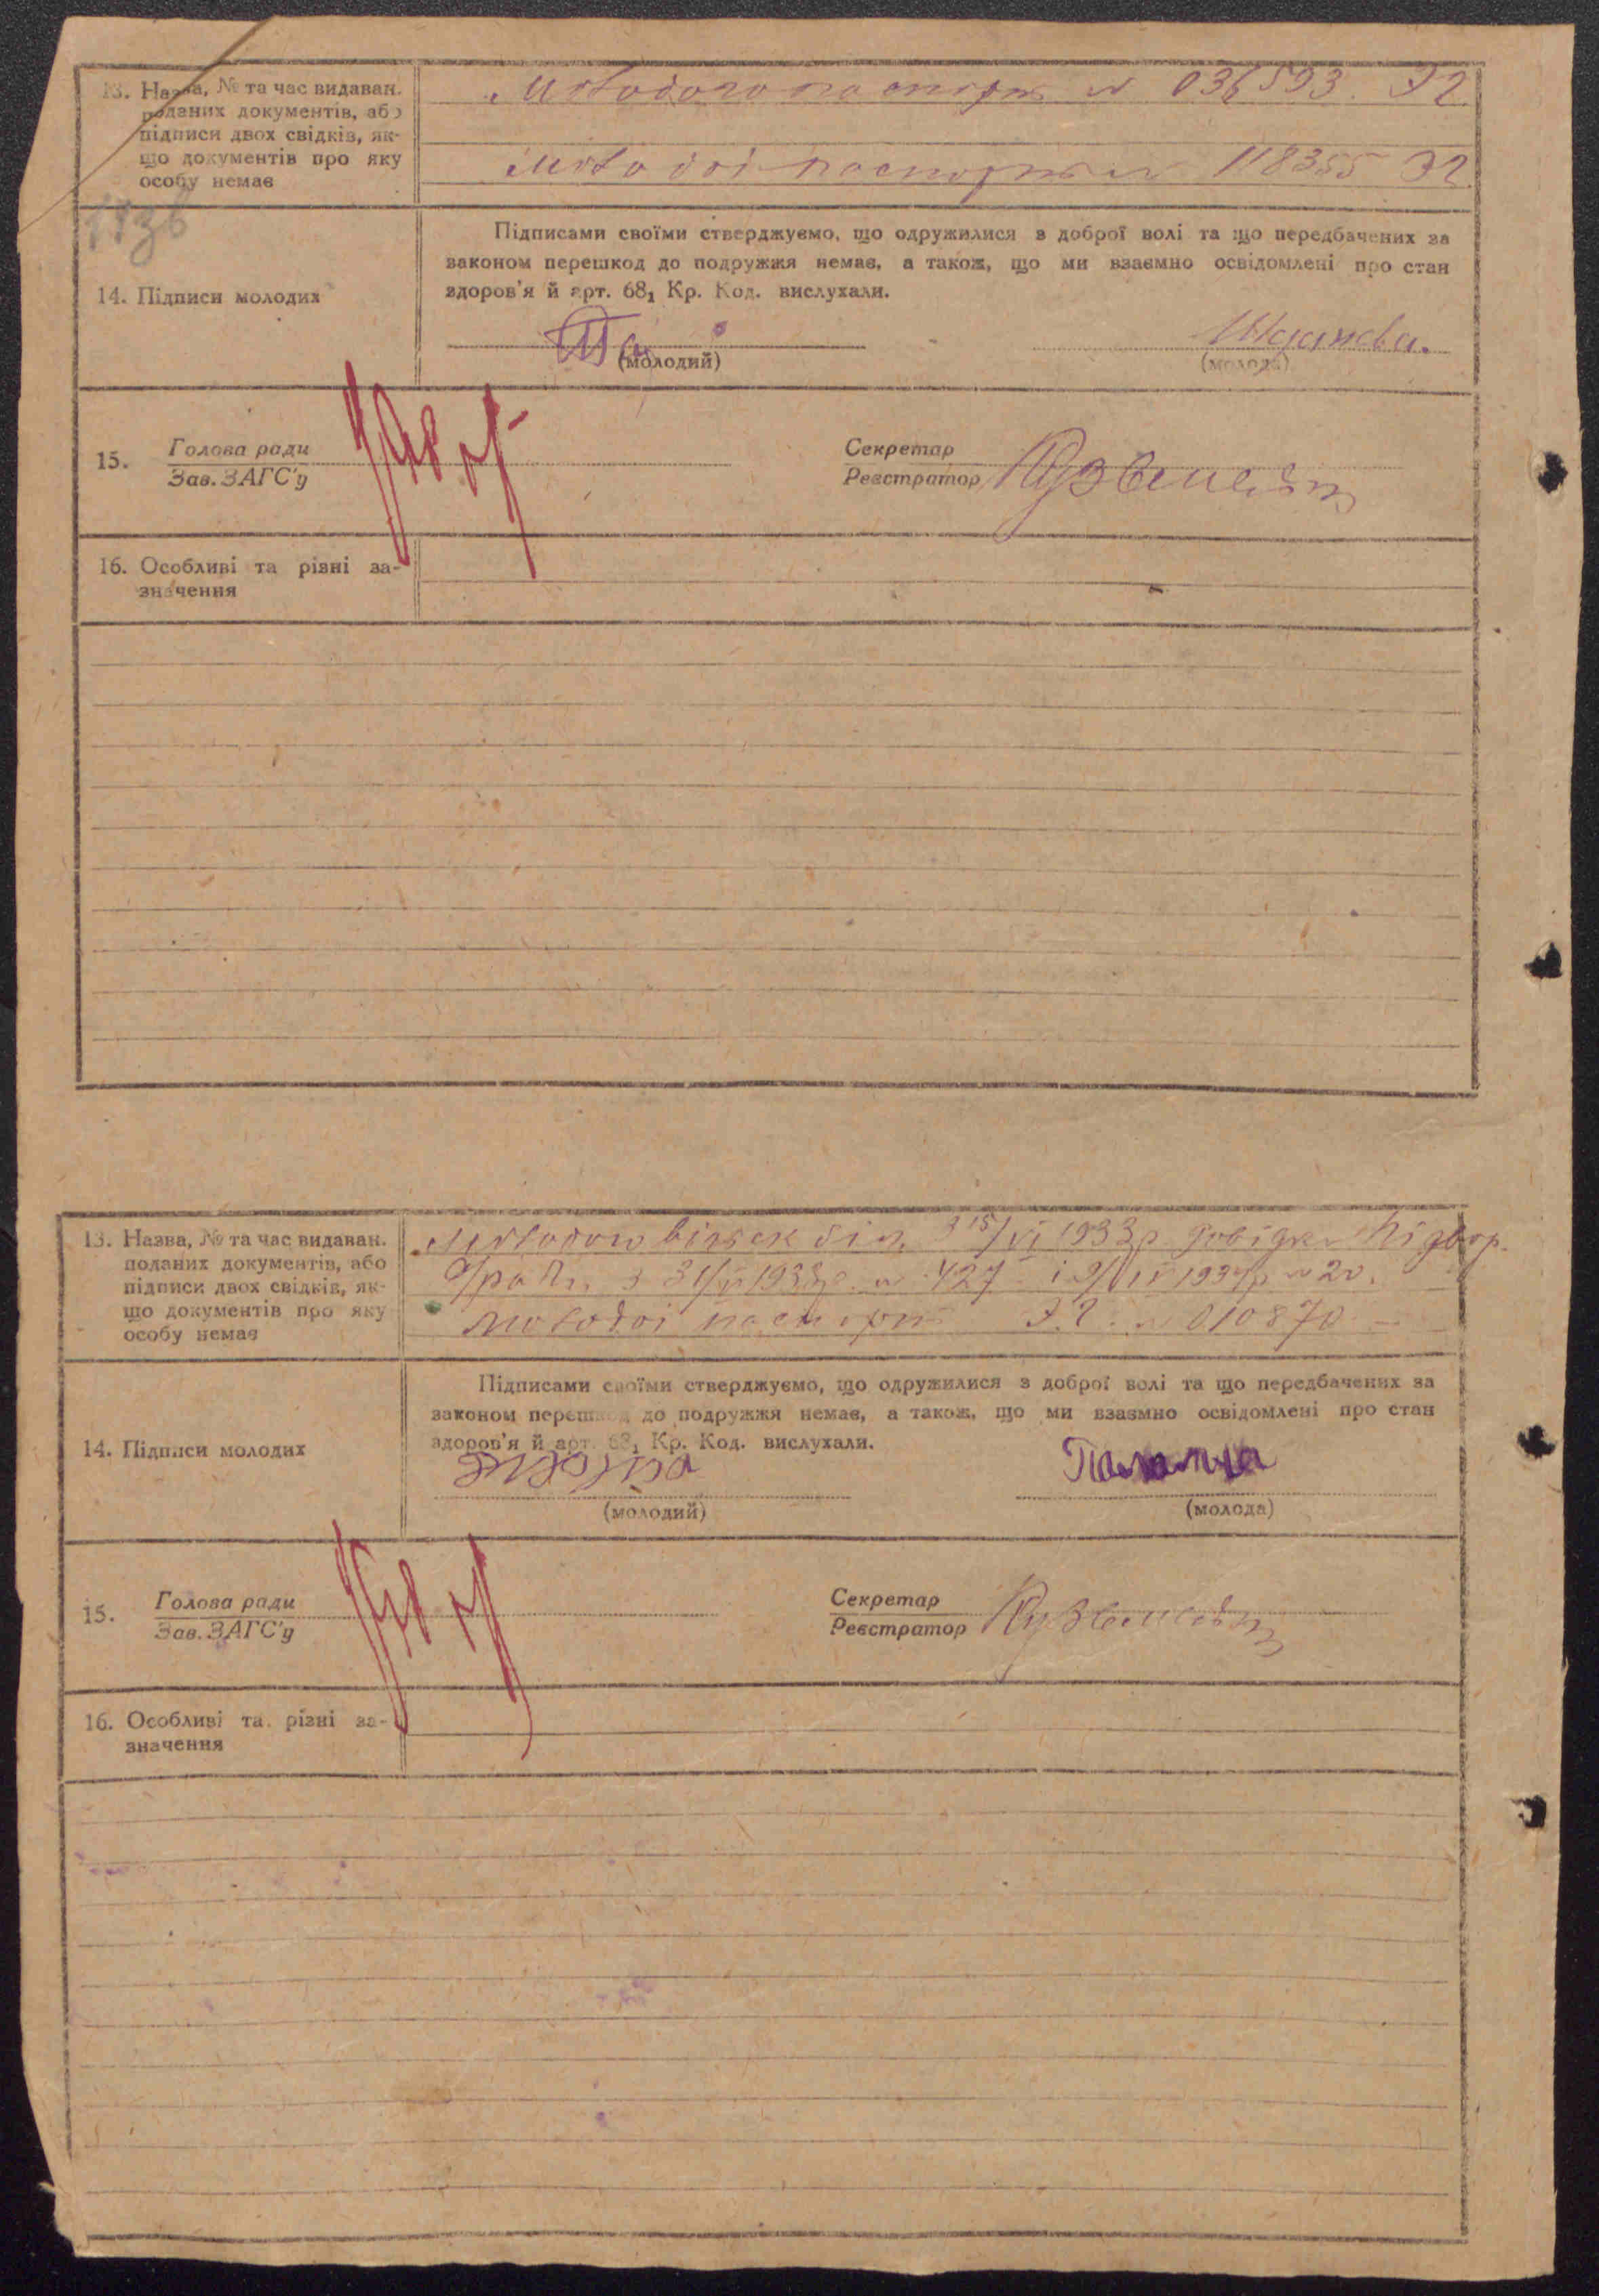 13. Назва, № та час видаван. Молодого паспорт № 036593. ЭГ
поданих документів, або
підписи двох свідків, як-
що документів про яку Молодої паспорт № 118355 ЭГ
особу немає
Підписами своїми стверджуємо, що одружилися з доброї волі та що передбачених за
законом перешкод до подружжя немає, а також, що ми взаємно освідомлені про стан
14. Підписи молодих здоров'я й арт. 68₁ Кр. Код. вислухали.
(молодий) (молода)
15. Голова ради Секретар
Зав. ЗАГС'у Реєстратор
16. Особливі та різні за-
значення
13. Назва, № та час видаван. Молодого військ біл. з 15/VI 1933р довідка
поданих документів, або
підписи двох свідків, як- с/ради з 1933р. № 427 і 1934р № 20.
що документів про яку Молодої паспорт ЭГ. № 010870
особу немає
Підписами своїми стверджуємо, що одружилися з доброї волі та що передбачених за
законом перешкод до подружжя немає, а також, що ми взаємно освідомлені про стан
14. Підписи молодих здоров'я й арт. 68₁ Кр. Код. вислухали.
(молодий) (молода)
15. Голова ради Секретар
Зав. ЗАГС'у Реєстратор
16. Особливі та різні за-
значення